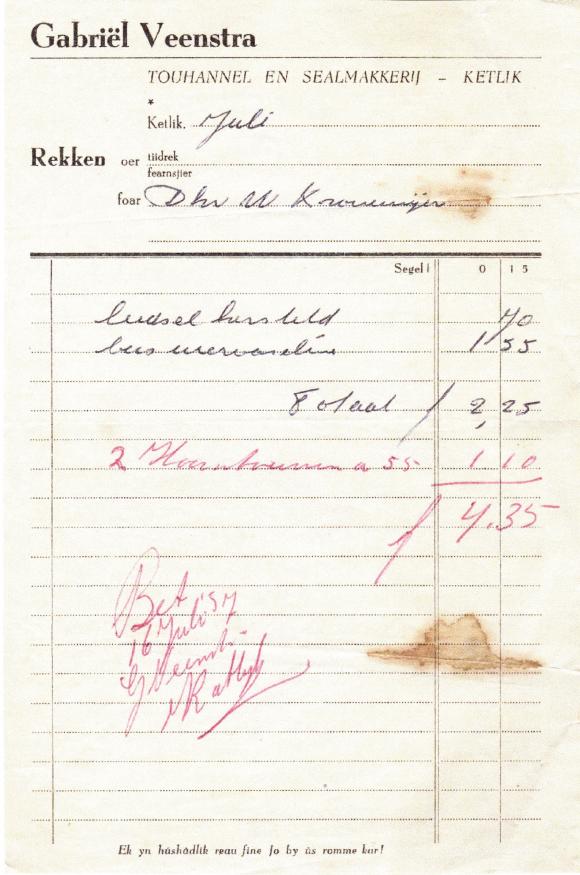 Gabriël Veenstra
TOUHANNEL EN SEALMAKKERIJ – KETLIK
*
Ketlik, Juli
Rekken oer tiidrek
fearnsjier
foar Dhr W Kroneme​ijer
Segel f 0 15
leidsel hersteld 70
bus 1 55
Totaal f 2,25
2 a 55 1 10
f 4.35
Bet
16 Juli 57
G Veenstr
Katlijk
Ek yn húshâdlik reau fine jo by ús romme kar!